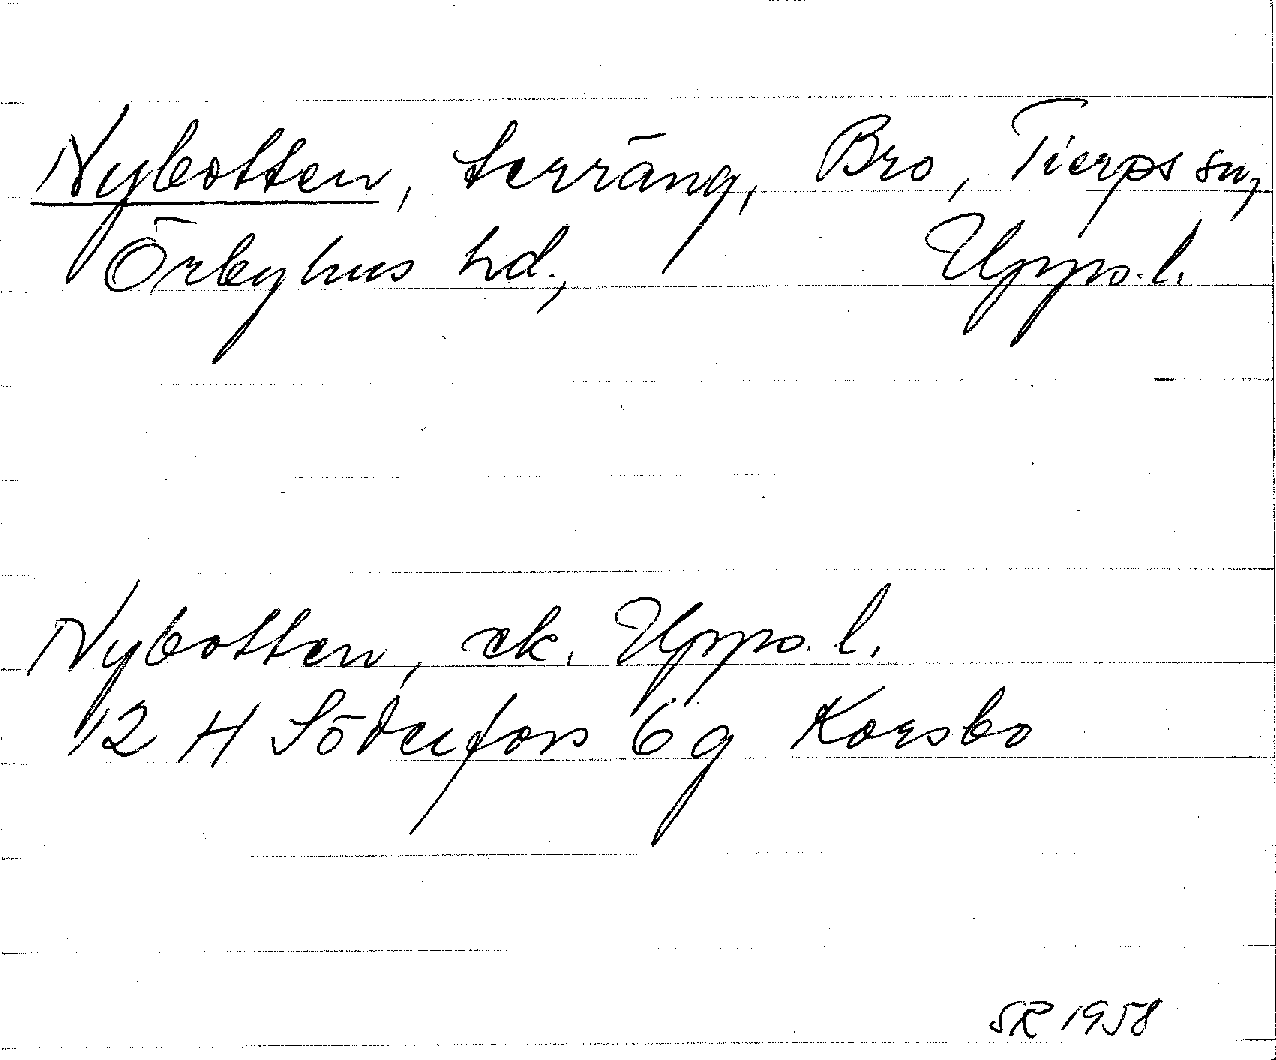 Nybotten, terräng, Bro, Tierps sn,
Örbyhus hd., Upps. l.
Nybotten, ek. Upps. l.
12 H Söderfors 6 g Korsbo
SR 1958